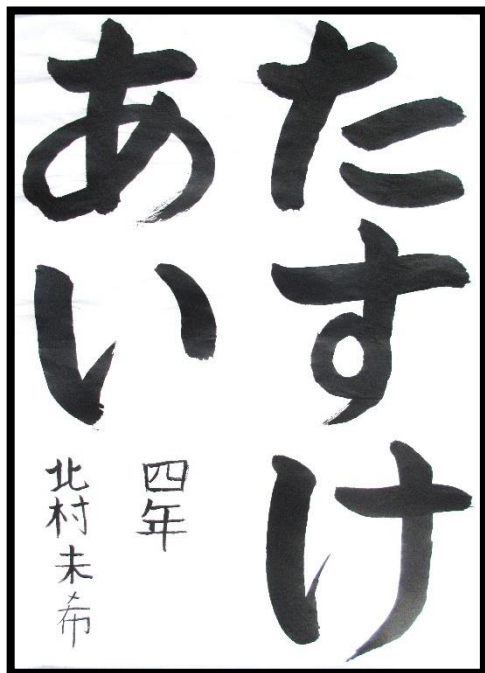 たすけ
あい
四年
北村未希